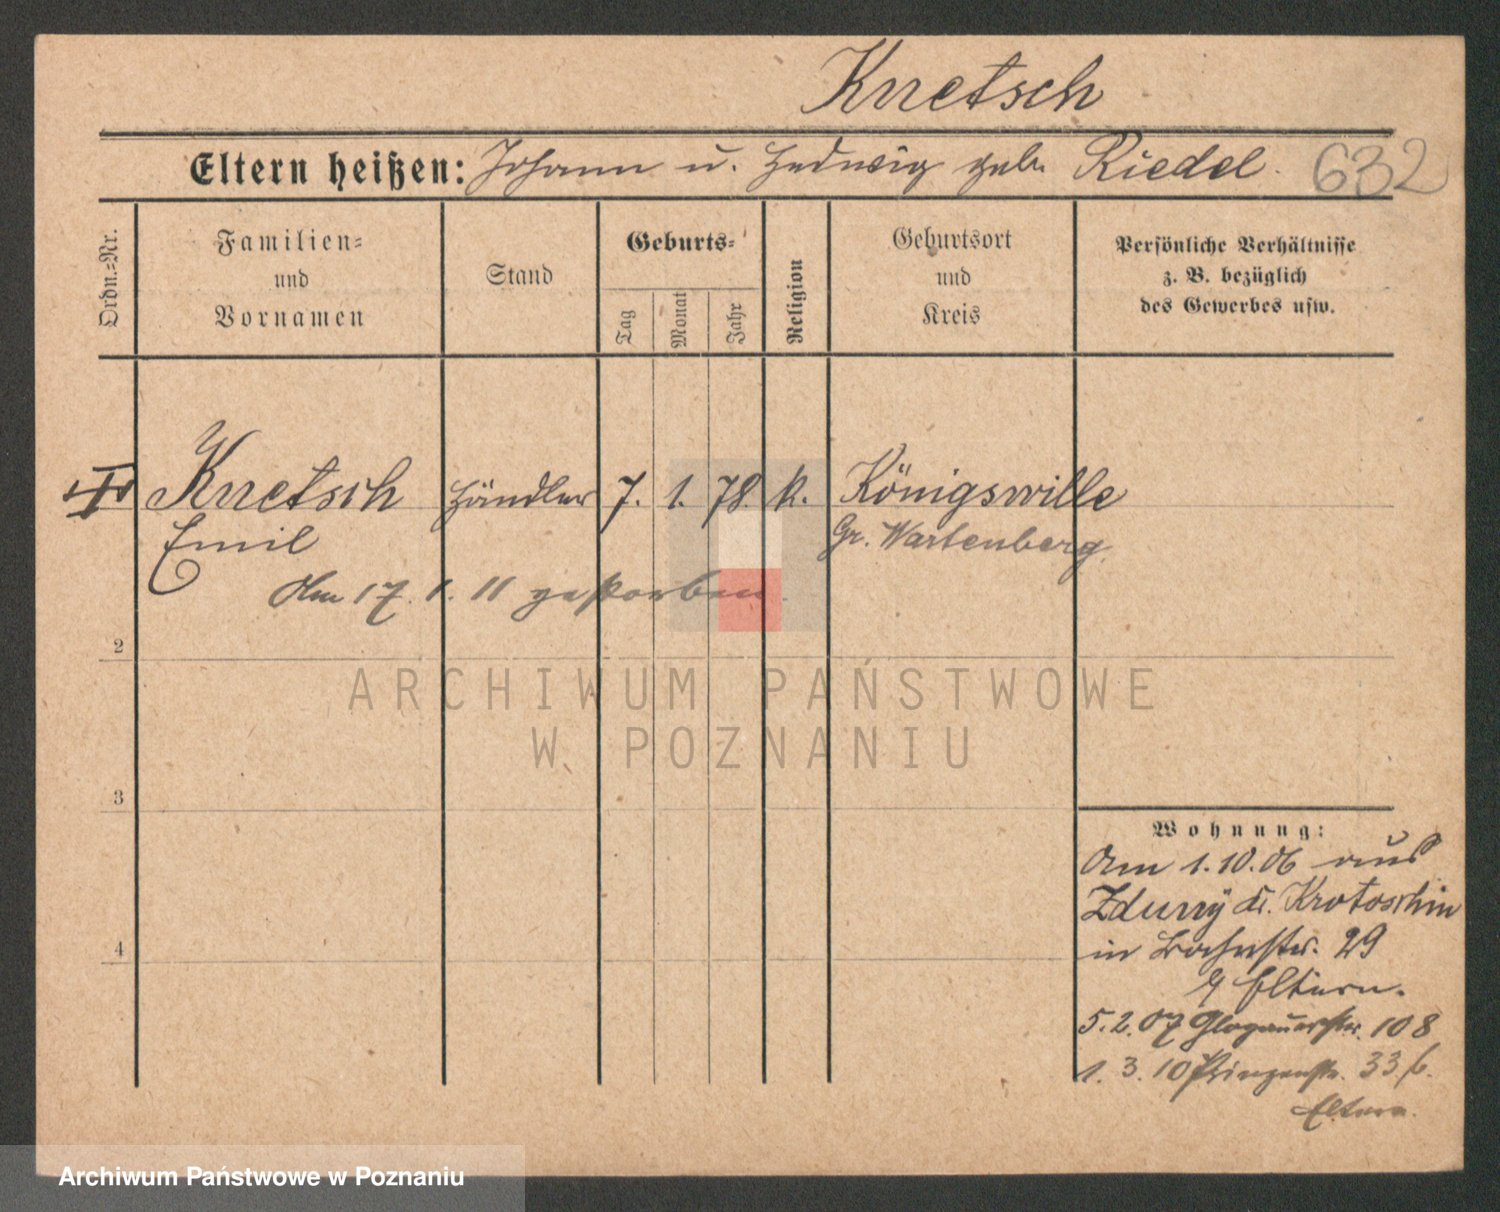 Knetsch
Eltern heißen: Johann u. Hedwig geb. Riedel. 632
Ordn.=Nr.
Familien=
und
Vornamen
Stand
Geburts=
Tag
Monat
Jahr
Religion
Geburtsort
und
Kreis
Persönliche Verhältnisse
z. B. bezüglich
des Gewerbes usw.
Knetsch Händler 7. 1. 78. k. Königswille
Emil Gr. Wartenberg.
Am 17. 1. 11 gestorben.
2
3
4
ARCHIWUM PAŃSTWOWE
W POZNANIU
Wohnung:
Am 1.10.06 aus
Zduny Kr. Krotoschin
in Bahnstr. 29
b/ Eltern.
5.2.07 Glogauerstr. 108
1. 3. 10 Prinzenstr. 33 b.
Eltern.
Archiwum Państwowe w Poznaniu